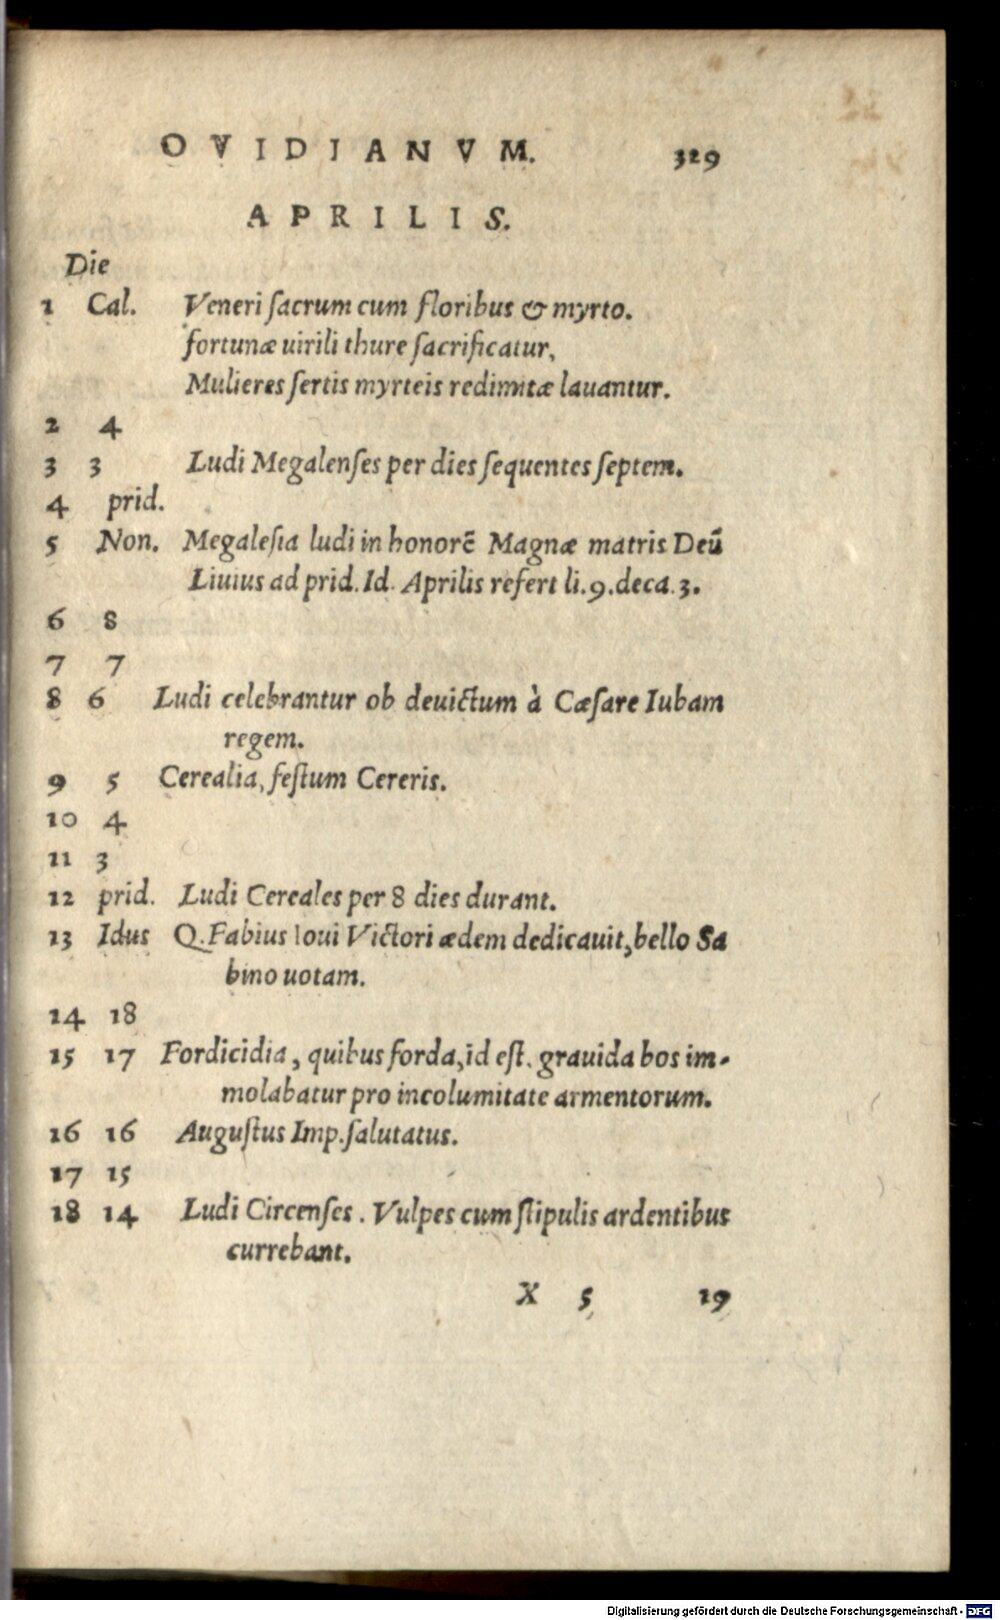 OVIDIANVM. 329
APRILIS.
Die
1 Cal. Veneri ſacrum cum floribus & myrto.
fortunæ uirili thure ſacrificatur,
Mulieres ſertis myrteis redimitæ lauantur.
2 4
3 3 Ludi Megalenſes per dies ſequentes ſeptem.
4 prid.
5 Non. Megaleſia ludi in honorē Magnæ matris Deū
Liuius ad prid. Id. Aprilis refert li. 9. deca. 3.
6 8
7 7
8 6 Ludi celebrantur ob deuictum à Cæſare Iubam
regem.
9 5 Cerealia, feſtum Cereris.
10 4
11 3
12 prid. Ludi Cereales per 8 dies durant.
13 Idus Q. Fabius Ioui Victori ædem dedicauit, bello Sa
bino uotam.
14 18
15 17 Fordicidia, quibus forda, id eſt. grauida bos im-
molabatur pro incolumitate armentorum.
16 16 Auguſtus Imp. ſalutatus.
17 15
18 14 Ludi Circenſes. Vulpes cum ſtipulis ardentibus
currebant.
X 5 19
Digitalisierung gefördert durch die Deutsche Forschungsgemeinschaft - DFG